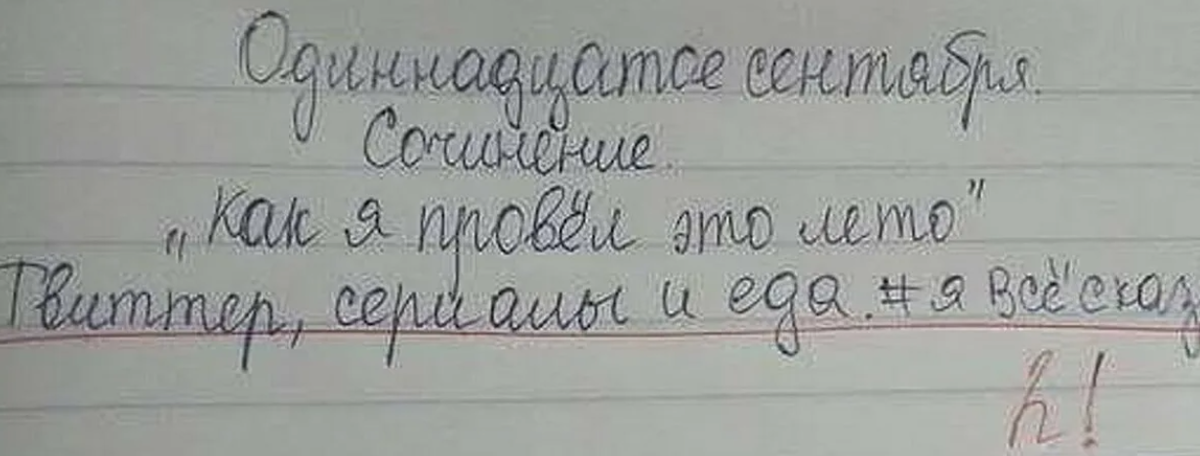 Одиннадцатое сентября.
Сочинение.
„Как я провёл это лето"
Твиттер, сериалы и еда. #я всё сказ